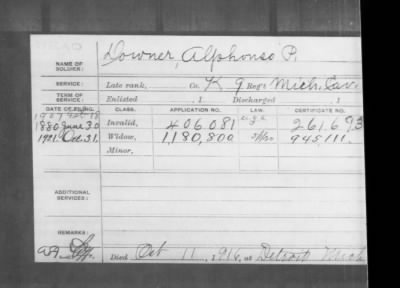 NAME OF SOLDIER: Downer, Alphonso P.
SERVICE: Late rank, Co. K 9 Reg't Mich. Cav.
TERM OF SERVICE: Enlisted 1 Discharged 1
DATE OF FILING. CLASS. APPLICATION NO. LAW. CERTIFICATE NO.
1880 June 30 Invalid, 406081 261,693
Oct. 31. Widow, 1,180,800 945111.
Minor,
ADDITIONAL SERVICES:
REMARKS:
Died Oct 11, 1916, at Detroit Mich